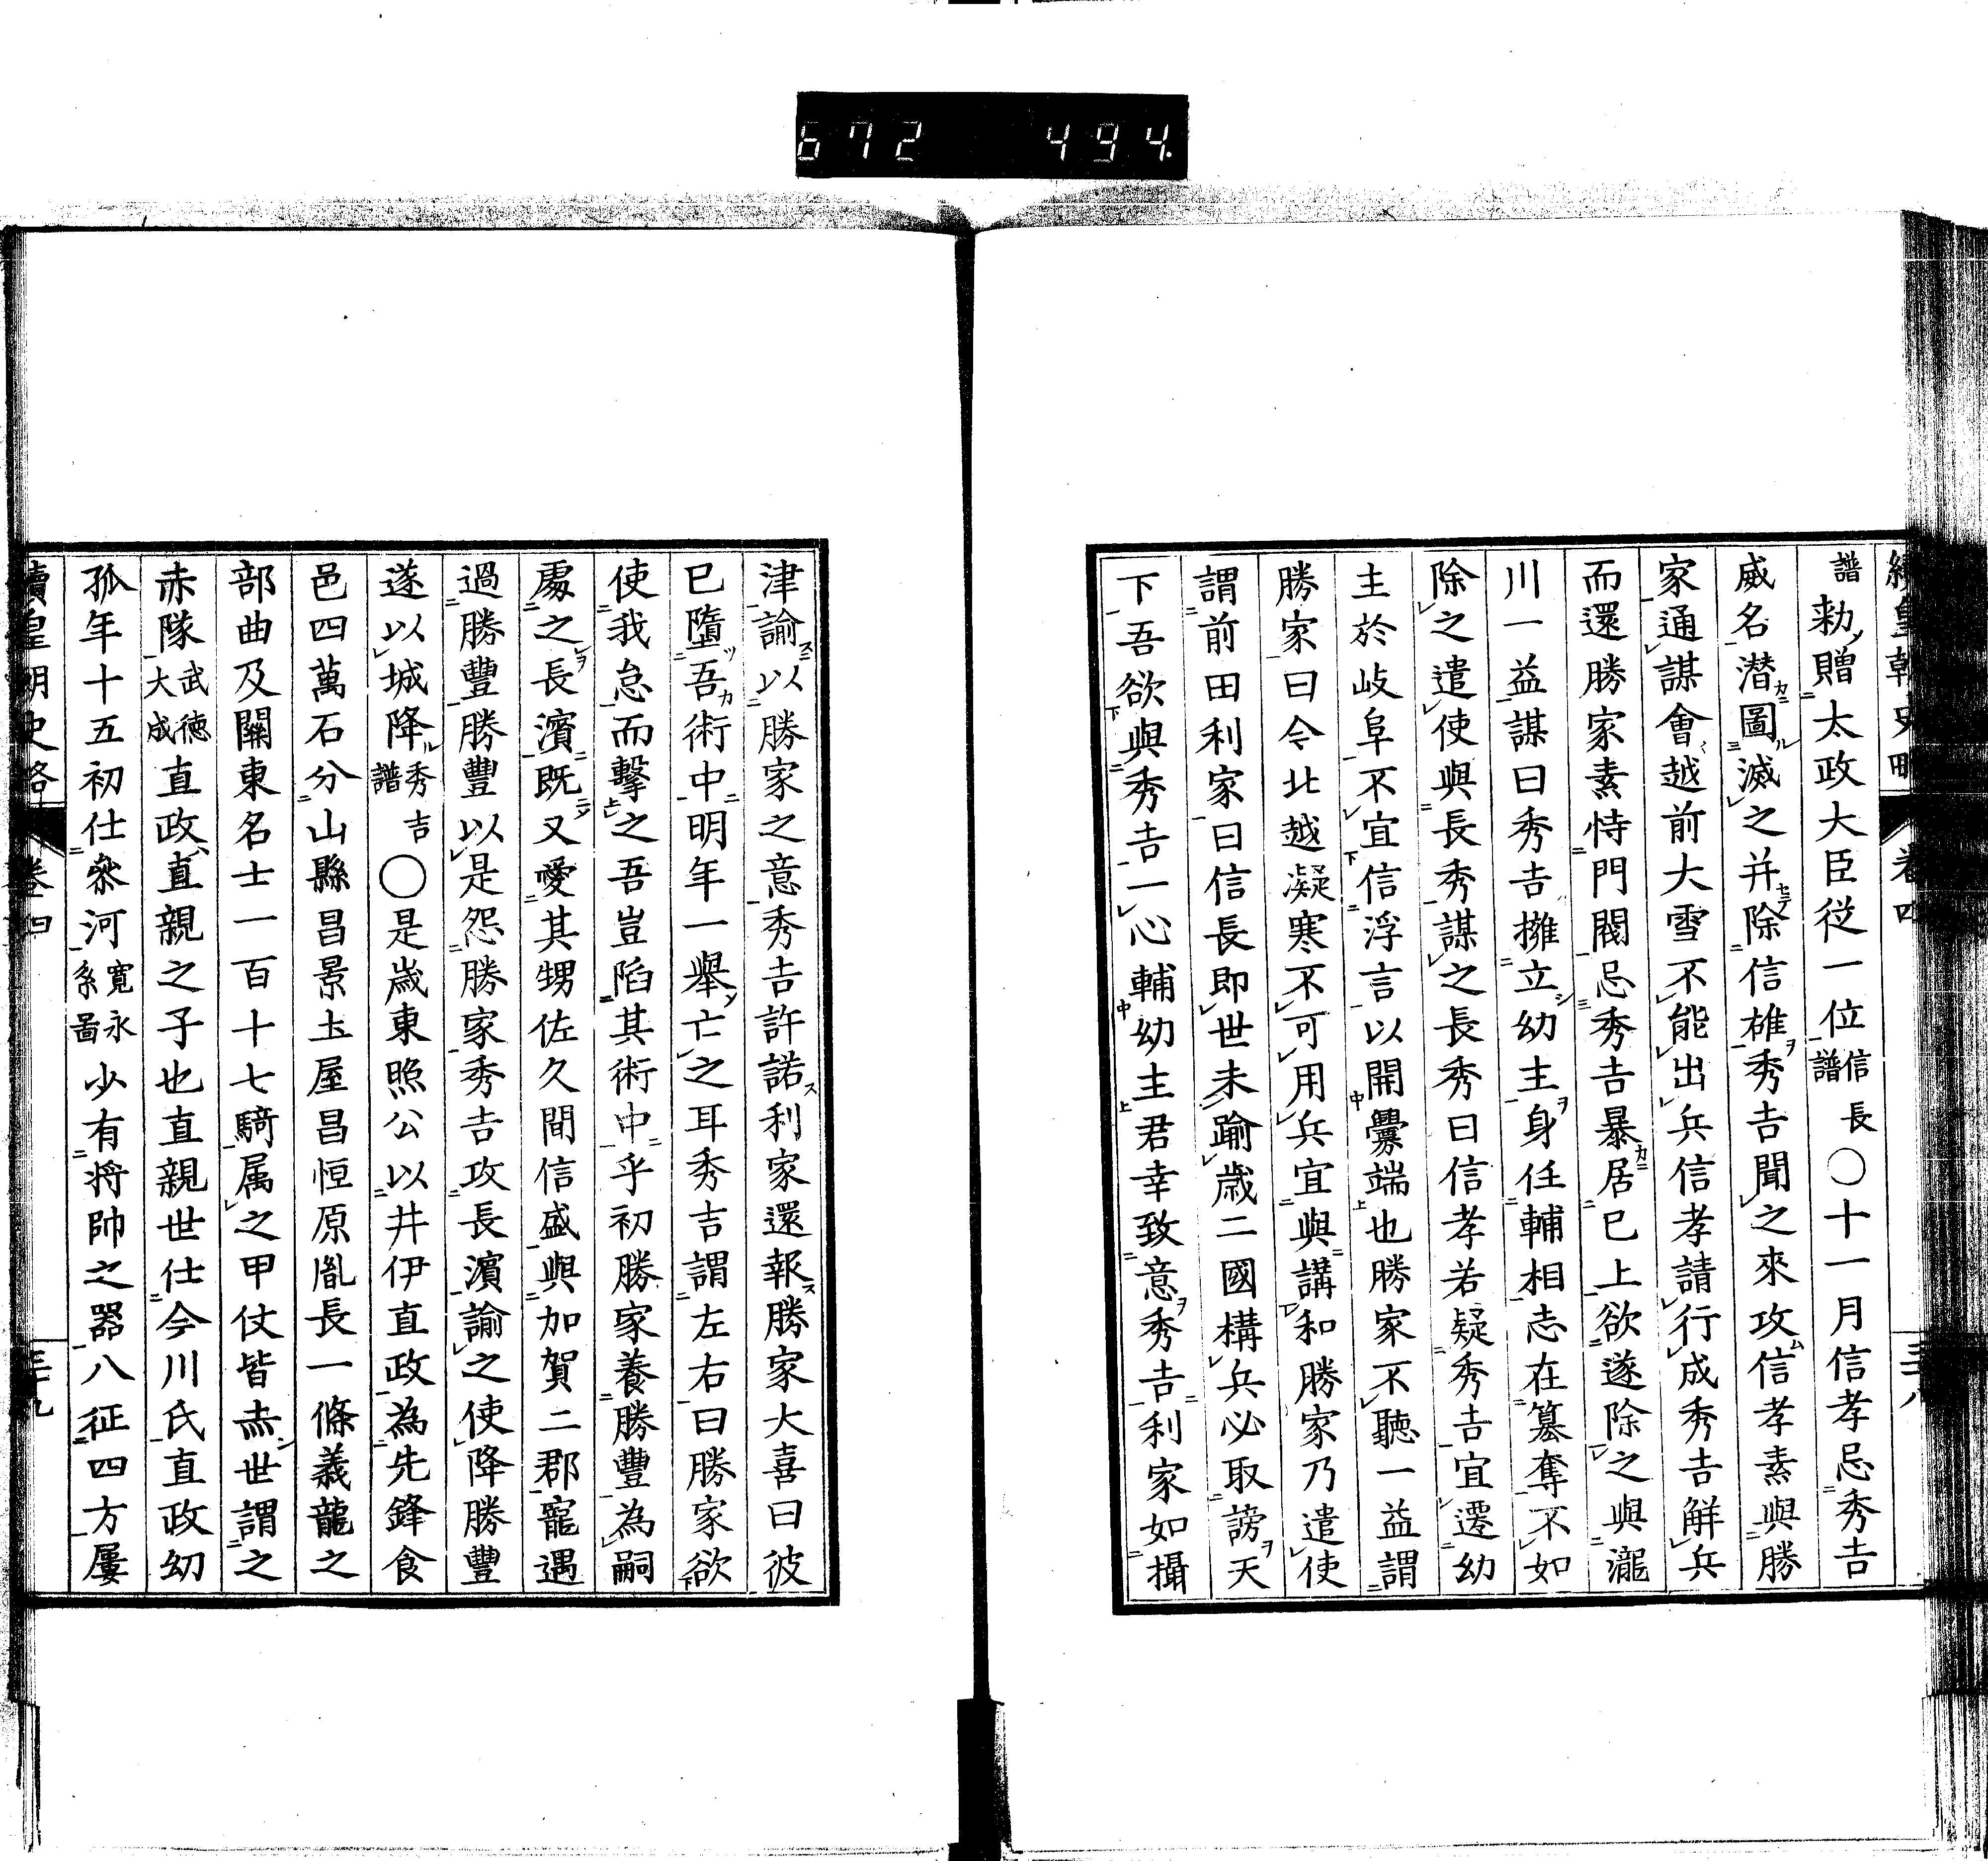 672 494.
續皇朝史略 卷四 三十八
譜勅贈太政大臣従一位信長譜○十一月信孝忌秀吉
威名潜圖滅之并除信雄秀吉聞之來攻信孝素與勝
家通謀會越前大雪不能出兵信孝請行成秀吉解兵
而還勝家素恃門閥忌秀吉暴居已上欲遂除之與瀧
川一益謀曰秀吉擁立幼主身任輔相志在簒奪不如
除之遣使與長秀謀之長秀曰信孝若疑秀吉宜遷幼
主於岐阜不宜信浮言以開釁端也勝家不聽一益謂
勝家曰今北越凝寒不可用兵宜與講和勝家乃遣使
謂前田利家曰信長即世未踰歳二國構兵必取謗天
下吾欲與秀吉一心輔幼主君幸致意秀吉利家如攝
津諭以勝家之意秀吉許諾利家還報勝家大喜曰彼
已墮吾術中明年一舉亡之耳秀吉謂左右曰勝家欲
使我怠而撃之吾豈陷其術中乎初勝家養勝豐為嗣
處之長濱既又愛其甥佐久間信盛與加賀二郡寵遇
過勝豐勝豐以是怨勝家秀吉攻長濱諭之使降勝豐
遂以城降秀吉譜○是歳東照公以井伊直政為先鋒食
邑四萬石分山縣昌景土屋昌恒原胤長一條義龍之
部曲及關東名士一百十七騎属之甲仗皆赤世謂之
赤隊武徳大成直政直親之子也直親世仕今川氏直政幼
孤年十五初仕參河寛永系圖少有将帥之器八征四方屢
續皇朝史略 卷四 三十九